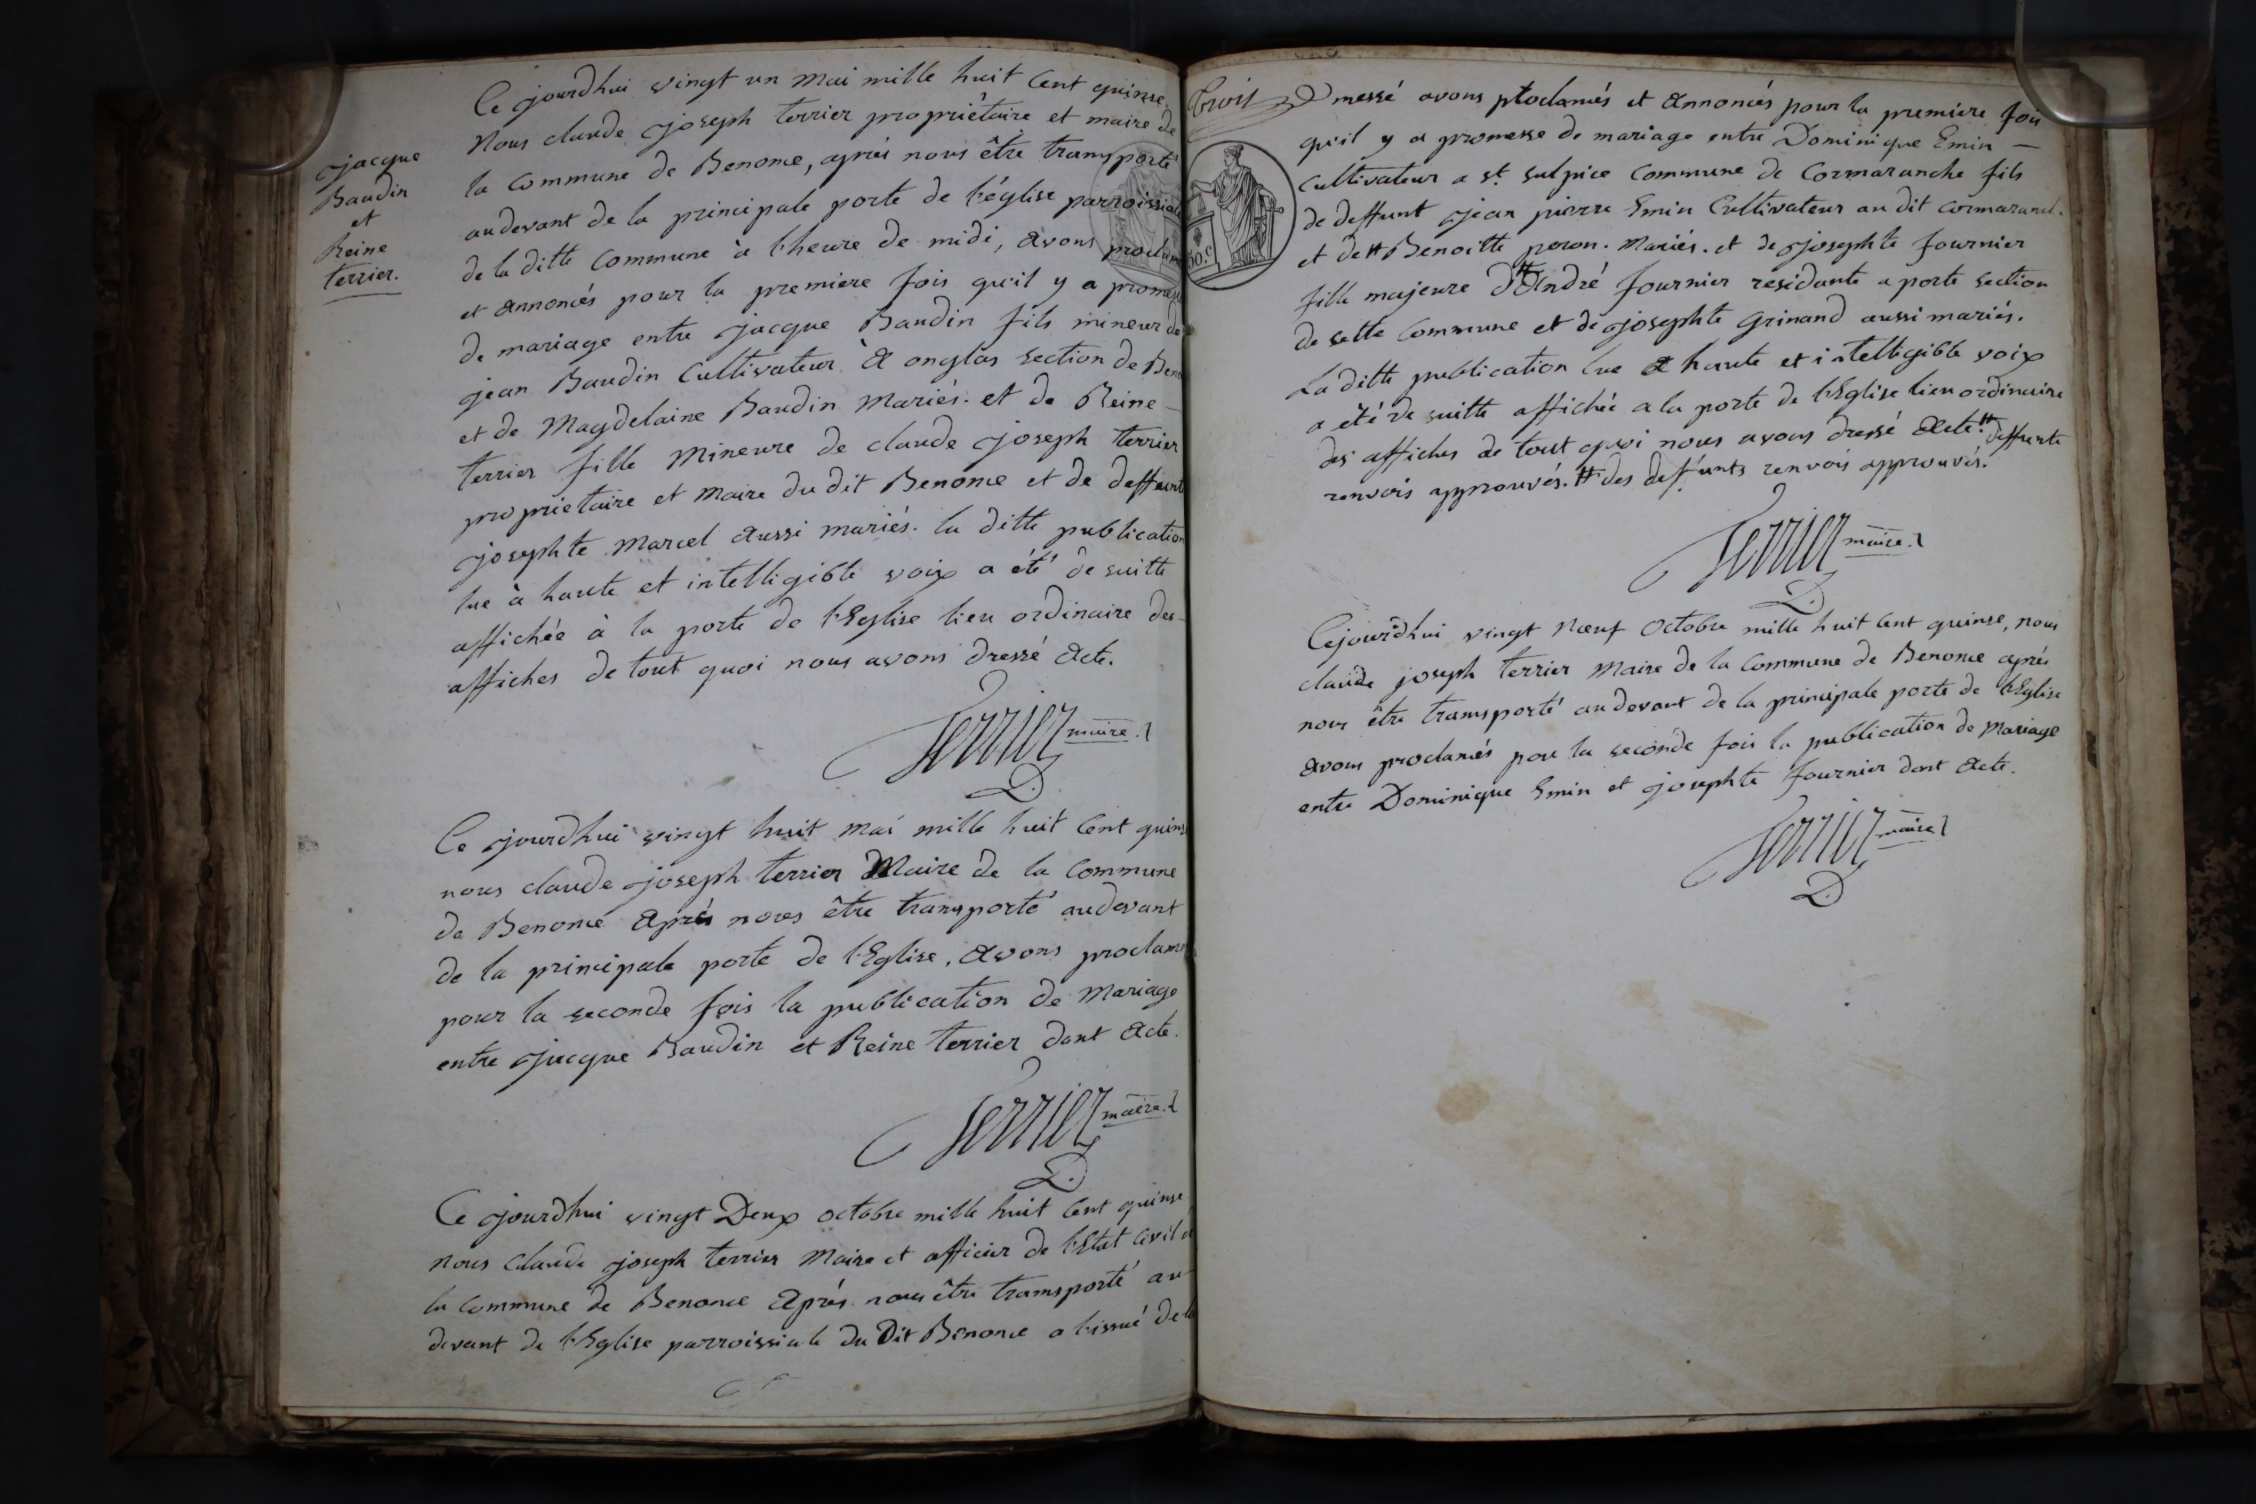 jacque
Baudin
et
Reine
terrier.
Ce jourdhui vingt un mai mille huit Cent quinse,
Nous claude joseph terrier propriétaire et maire de
la commune de Benonce, aprés nous être transporté
audevant de la principale porte de l'église parroissiale
de la ditte Commune à l'heure de midi, avons proclam
et annoncés pour la premiere fois qu'il y a promess
de mariage entre jacque Baudin fils mineur de
jean Baudin Cultivateur à onglas section de Beno
et de Magdelaine Baudin Mariés. et de Reine -
terrier fille Mineure de claude joseph terrier
proprietaire et Maire du dit Benonce et de deffunte
josephte Marcel aussi mariés. la ditte publication
lue à haute et intelligible voix a été de suitte
affichée à la porte de l'Eglise lieu ordinaire des-
affiches de tout quoi nous avons dressé acte.
Terrier maire.
D.
Ce jourdhui vingt huit mai mille huit Cent quins
nous claude joseph terrier Maire de la Commune
de Benonce aprés nous être transporté audevant
de la principale porte de l'Eglise, avons proclame
pour la seconde fois la publication de Mariage
entre jacque Baudin et Reine terrier dont acte.
Terrier maire.
D.
Ce jourdhui vingt Deux octobre mille huit Cent quinse
nous Claude joseph terrier Maire et officier de l'Etat Civil d
la Commune de Benonce aprés nous être transporté au-
devant de l'Eglise parroissiale du Dit Benonce a l'issue de la
trois
messé avons proclamés et annoncés pour la premiere fois
qu'il y a promesse de mariage entre Dominique Emin -
Cultivateur a st. Sulpice Commune de Cormaranche fils
de deffunt jean pierre Emin Cultivateur au dit cormaranch.
et de # Benoitte peron. Mariés. et de josephte fournier
fille majeure d'# André fournier residante a porte section
de cette Commune et de josephte Grinand aussi mariés.
La ditte publication lue a haute et intelligible voix
a été de suitte affichée a la porte de l'Eglise lieu ordinaire
des affiches de tout quoi nous avons dressé acte. # deffunte
renvois approuvés. # des defunts renvois approuvés.
50.c
Terrier maire.
D.
Cejourdhui vingt Neuf Octobre mille huit Cent quinse, nous
claude joseph terrier Maire de la Commune de Benonce aprés
nous être transporté audevant de la principale porte de l'Eglise
avons proclamés pour la seconde fois la publication de Mariage
entre Dominique Emin et josephte fournier dont acte.
Terrier maire
D